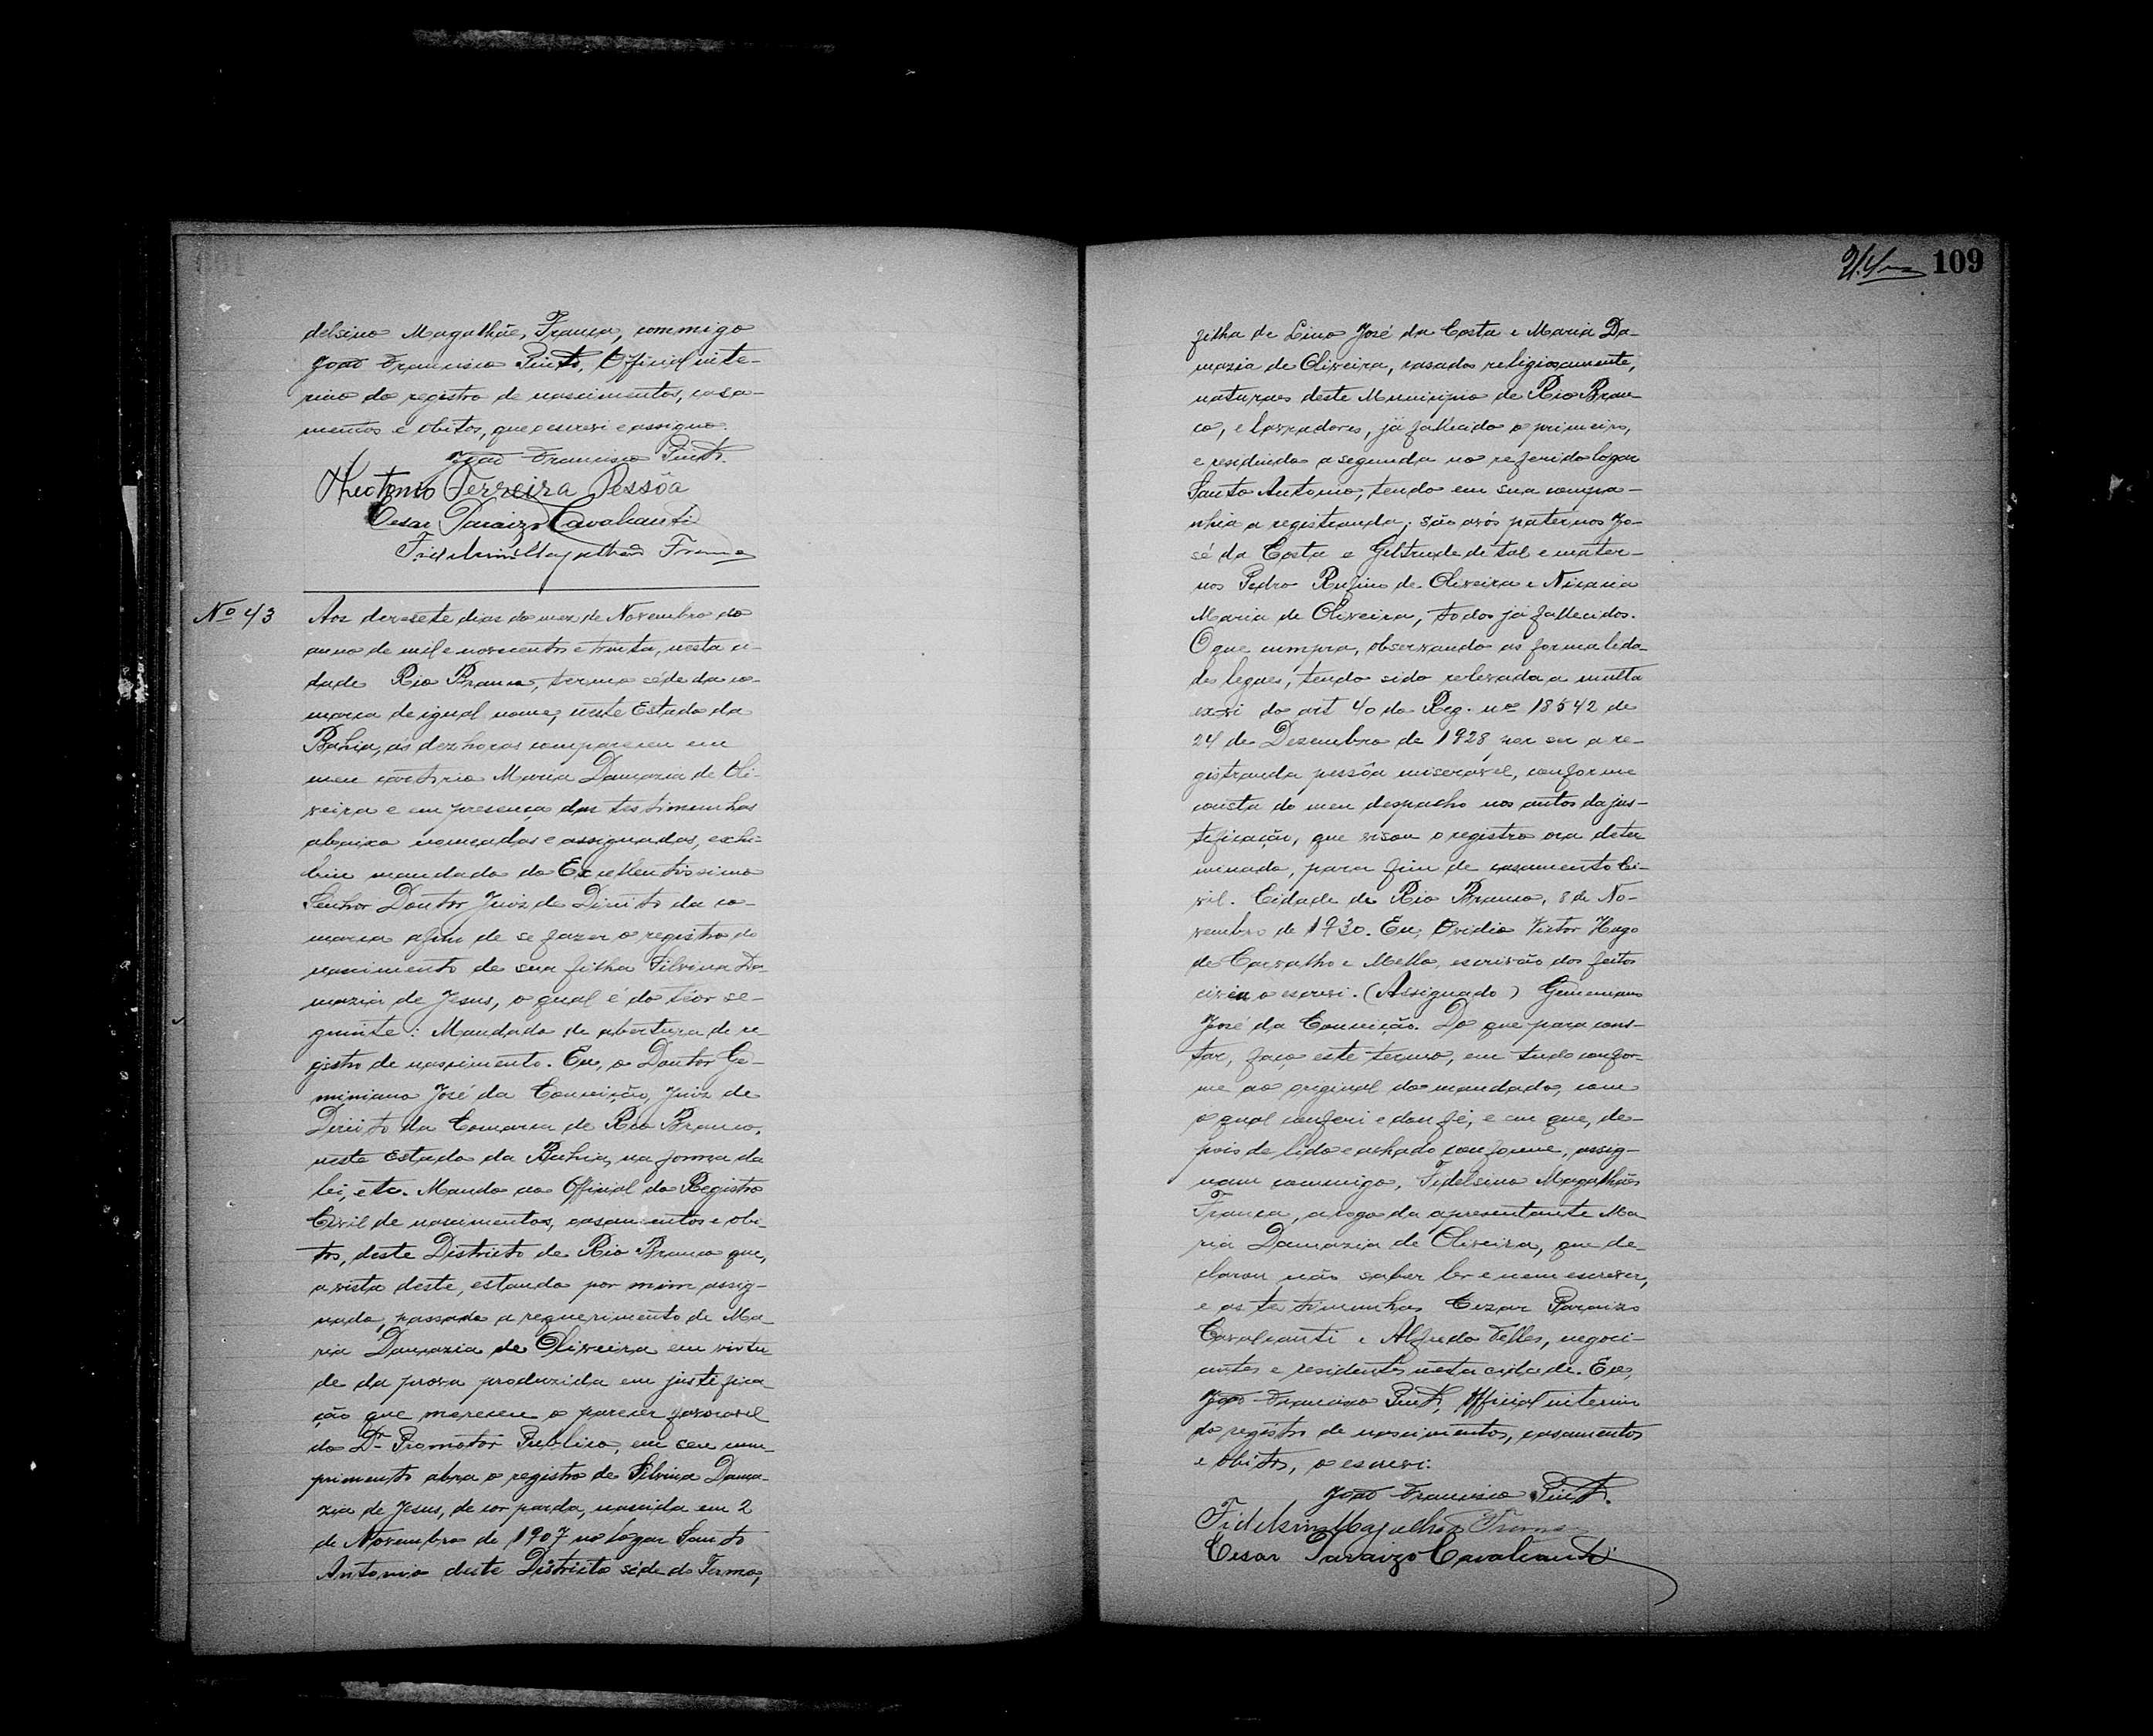 delsino Magalhães França, commigo
João Francisco Pinto, Official inte-
rino do registro de nascimentos, casa-
mentos e obitos, que o escrevi e assigno.
João Francisco Pinto.
Theotonio Ferreira Pessôa
Cesar Paraizo Cavalcanti
Fidelsino Magalhães França
Nº 43
Aos dezesete dias do mez de Novembro do
anno de mil e novecentos e trinta, nesta ci-
dade Rio Branco, termo séde da co-
marca de igual nome, neste Estado da
Bahia, ás dez horas compareceu em
meu cartorio Maria Damazia de Oli-
veira e em presença das testimunhas
abaixo nomeadas e assignadas, exhi-
biu mandado do Excellentissimo
Senhor Doutor Juiz de Direito da co-
marca afim de se fazer o registro do
nascimento de sua filha Silvina Da-
mazia de Jesus, o qual é do teor se-
guinte: Mandado de abertura de re-
gistro de nascimento. Eu, o Doutor Ge-
miniano José da Conceição, Juiz de
Direito da Comarca de Rio Branco,
neste Estado da Bahia, na forma da
lei, etc. Mando ao Official do Registro
Civil de nascimentos, casamentos e obi-
tos, deste Districto de Rio Branco que,
a vista deste, estando por mim assig-
nado, passado a requerimento de Ma-
ria Damazia de Oliveira em virtu-
de da prova produzida em justifica-
ção que mereceu o parecer favoravel
do Dr. Promotor Publico, em seu cum-
primento abra o registro de Silvina Dama-
zia de Jesus, de cor parda, nascida em 2
de Novembro de 1907 no logar Santo
Antonio deste Districto séde do Termo,
109
filha de Lino José da Costa e Maria Da-
mazia de Oliveira, casados religiosamente,
naturaes deste Municipio de Rio Bran-
co, e lavradores, já fallecido o primeiro,
e residindo a segunda no referido logar
Santo Antonio, tendo em sua compa-
nhia a registranda; são avós paternos Jo-
sé da Costa e Geltrude de tal e mater-
nos Pedro Rufino de Oliveira e Nicacia
Maria de Oliveira, todos já fallecidos.
O que cumpra, observando as formalida-
des legaes, tendo sido relevada a multa
ex-vi do art 40 do Reg. nº 18542 de
24 de Dezembro de 1928 por ser a re-
gistranda pessôa miseravel, conforme
consta do meu despacho nos autos da jus-
tificação, que visou o registro ora deter
minado, para fim de casamento Ci-
vil. Cidade de Rio Branco, 8 de No-
vembro de 1930. Eu, Ovidio Victor Hugo
de Carvalho e Mello, escrivão dos feitos
civeis o escrevi. (Assignado) Geminiano
José da Conceição. Do que para cons-
tar, faço este termo, em tudo confor-
me ao original do mandado, com
o qual conferi e dou fé, e em que, de-
pois de lido e achado conforme, assig-
nam commigo, Fidelsino Magalhães
França, a rogo da apresentante Ma
ria Damazia de Oliveira, que de-
clarou não saber ler e nem escrever,
e as testimunhas Cezar Paraizo
Cavalcanti e Alfredo Telles, negoci-
antes e residentes nesta cidade. Eu,
João Francisco Pinto, Official interino
do registro de nascimentos, casamentos
e obitos, o escrevi.
João Francisco Pinto.
Fidelsino Magalhães França
Cesar Paraizo Cavalcanti